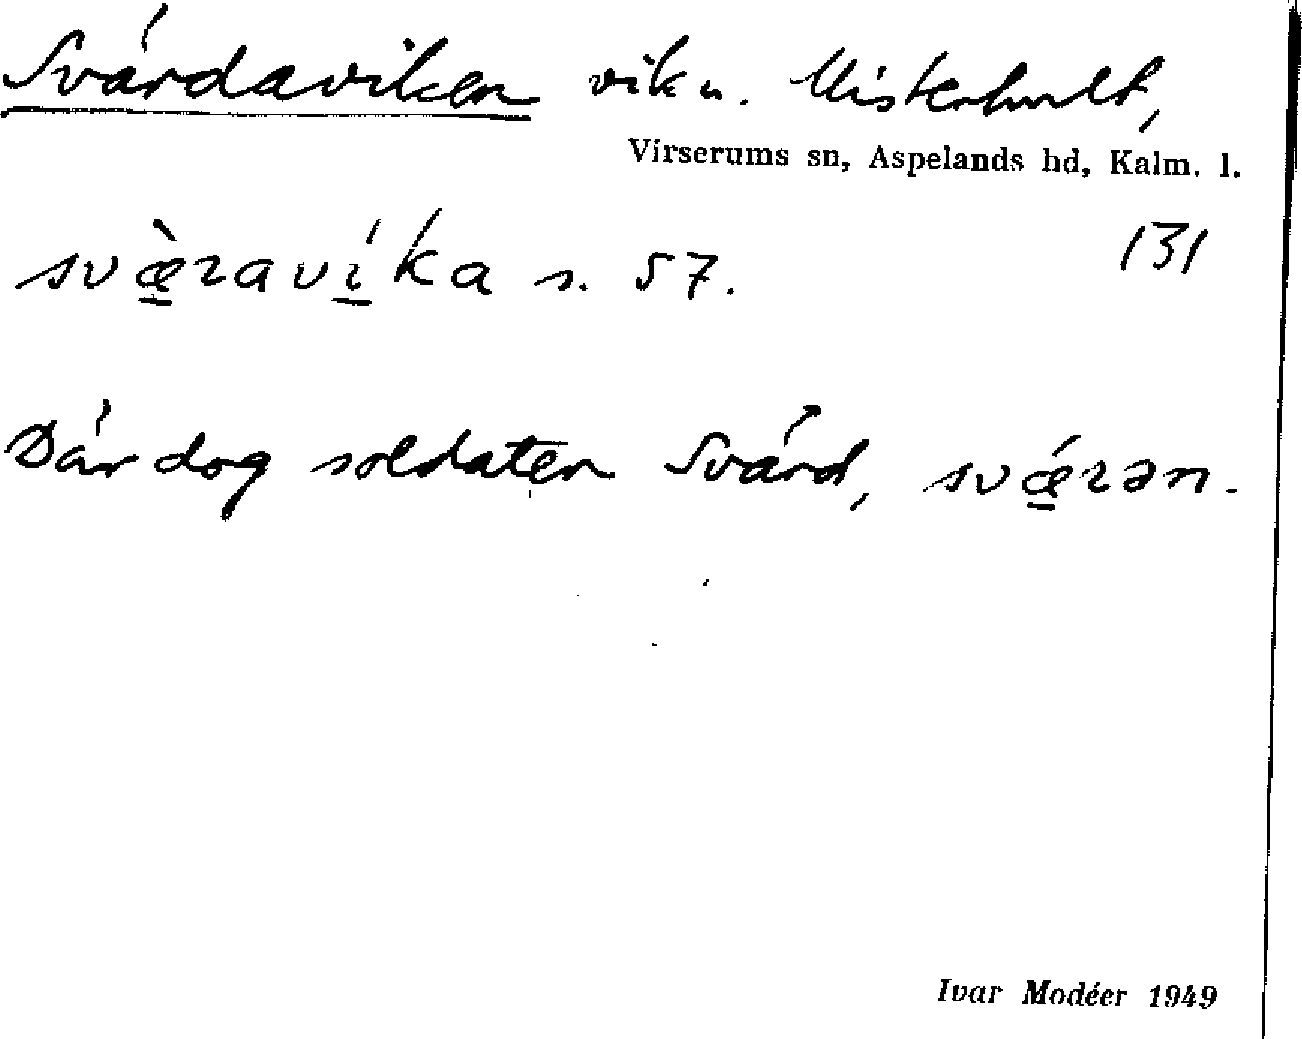 Svärdaviken vik u. Misterhult,
Virserums sn, Aspelands hd, Kalm. l.
svæ̠̀raví̠ka s. 57. 131
Där dog soldaten Svärd, svǽ̠rən.
Ivar Modéer 1949